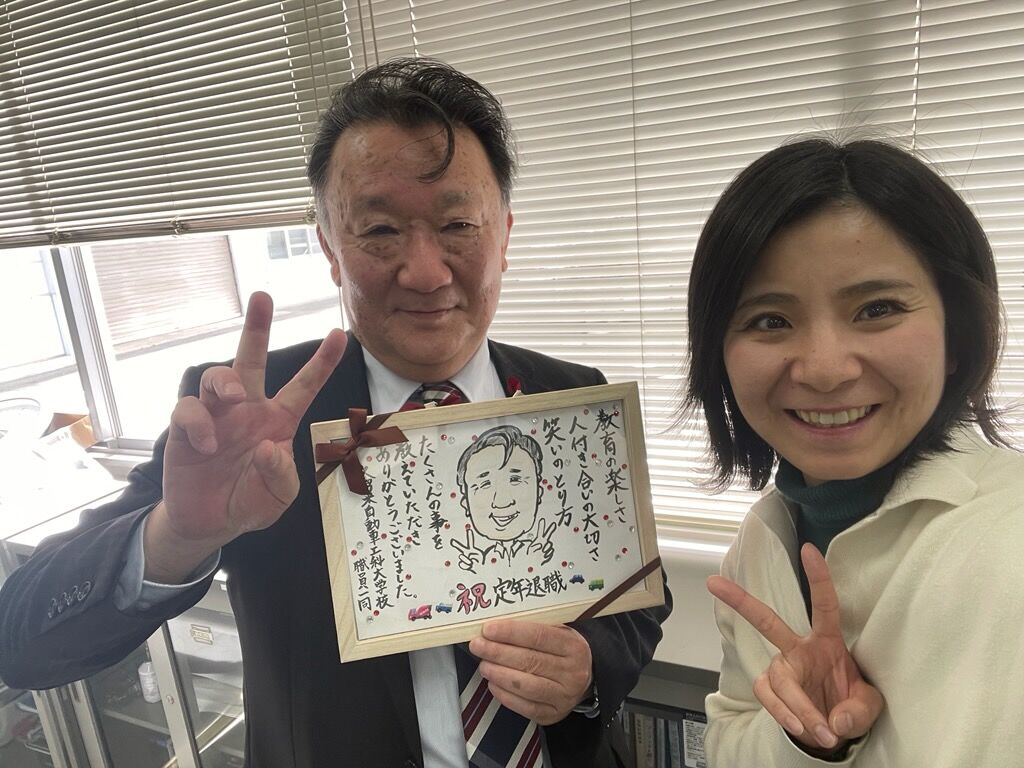 教育の楽しさ
人付き合いの大切さ
笑いのとり方
たくさんの事を
教えていただき
ありがとうございました。
自動車工科大学校
職員一同
祝 定年退職